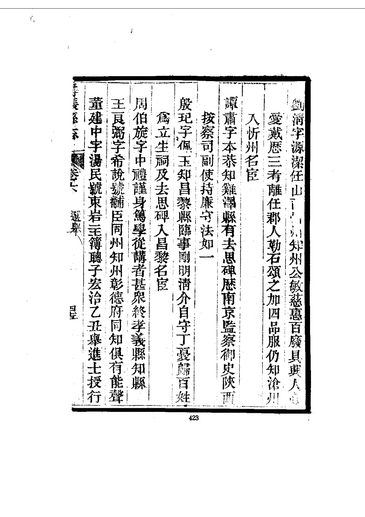 劉清字源潔任山知州公敏慈惠百廢具興人
愛戴歷三考離任郡人勒石頌之加四品服仍知滄州
入忻州名宦
譚肅字本恭知雞澤縣有去思碑歷南京監察御史陝西
按察司副使持廉守法如一
殷玘字佩玉知昌黎縣臨事剛明清介自守丁憂歸百姓
為立生祠及去思碑入昌黎名宦
周伯旋字中禮謹身篤學從講者甚眾終孝義縣知縣
王良弼字希說號輔臣同州知州彰德府同知俱有能聲
董建中字湯民號東岩主簿聽子宏治乙丑舉進士授行
卷六
選舉
423